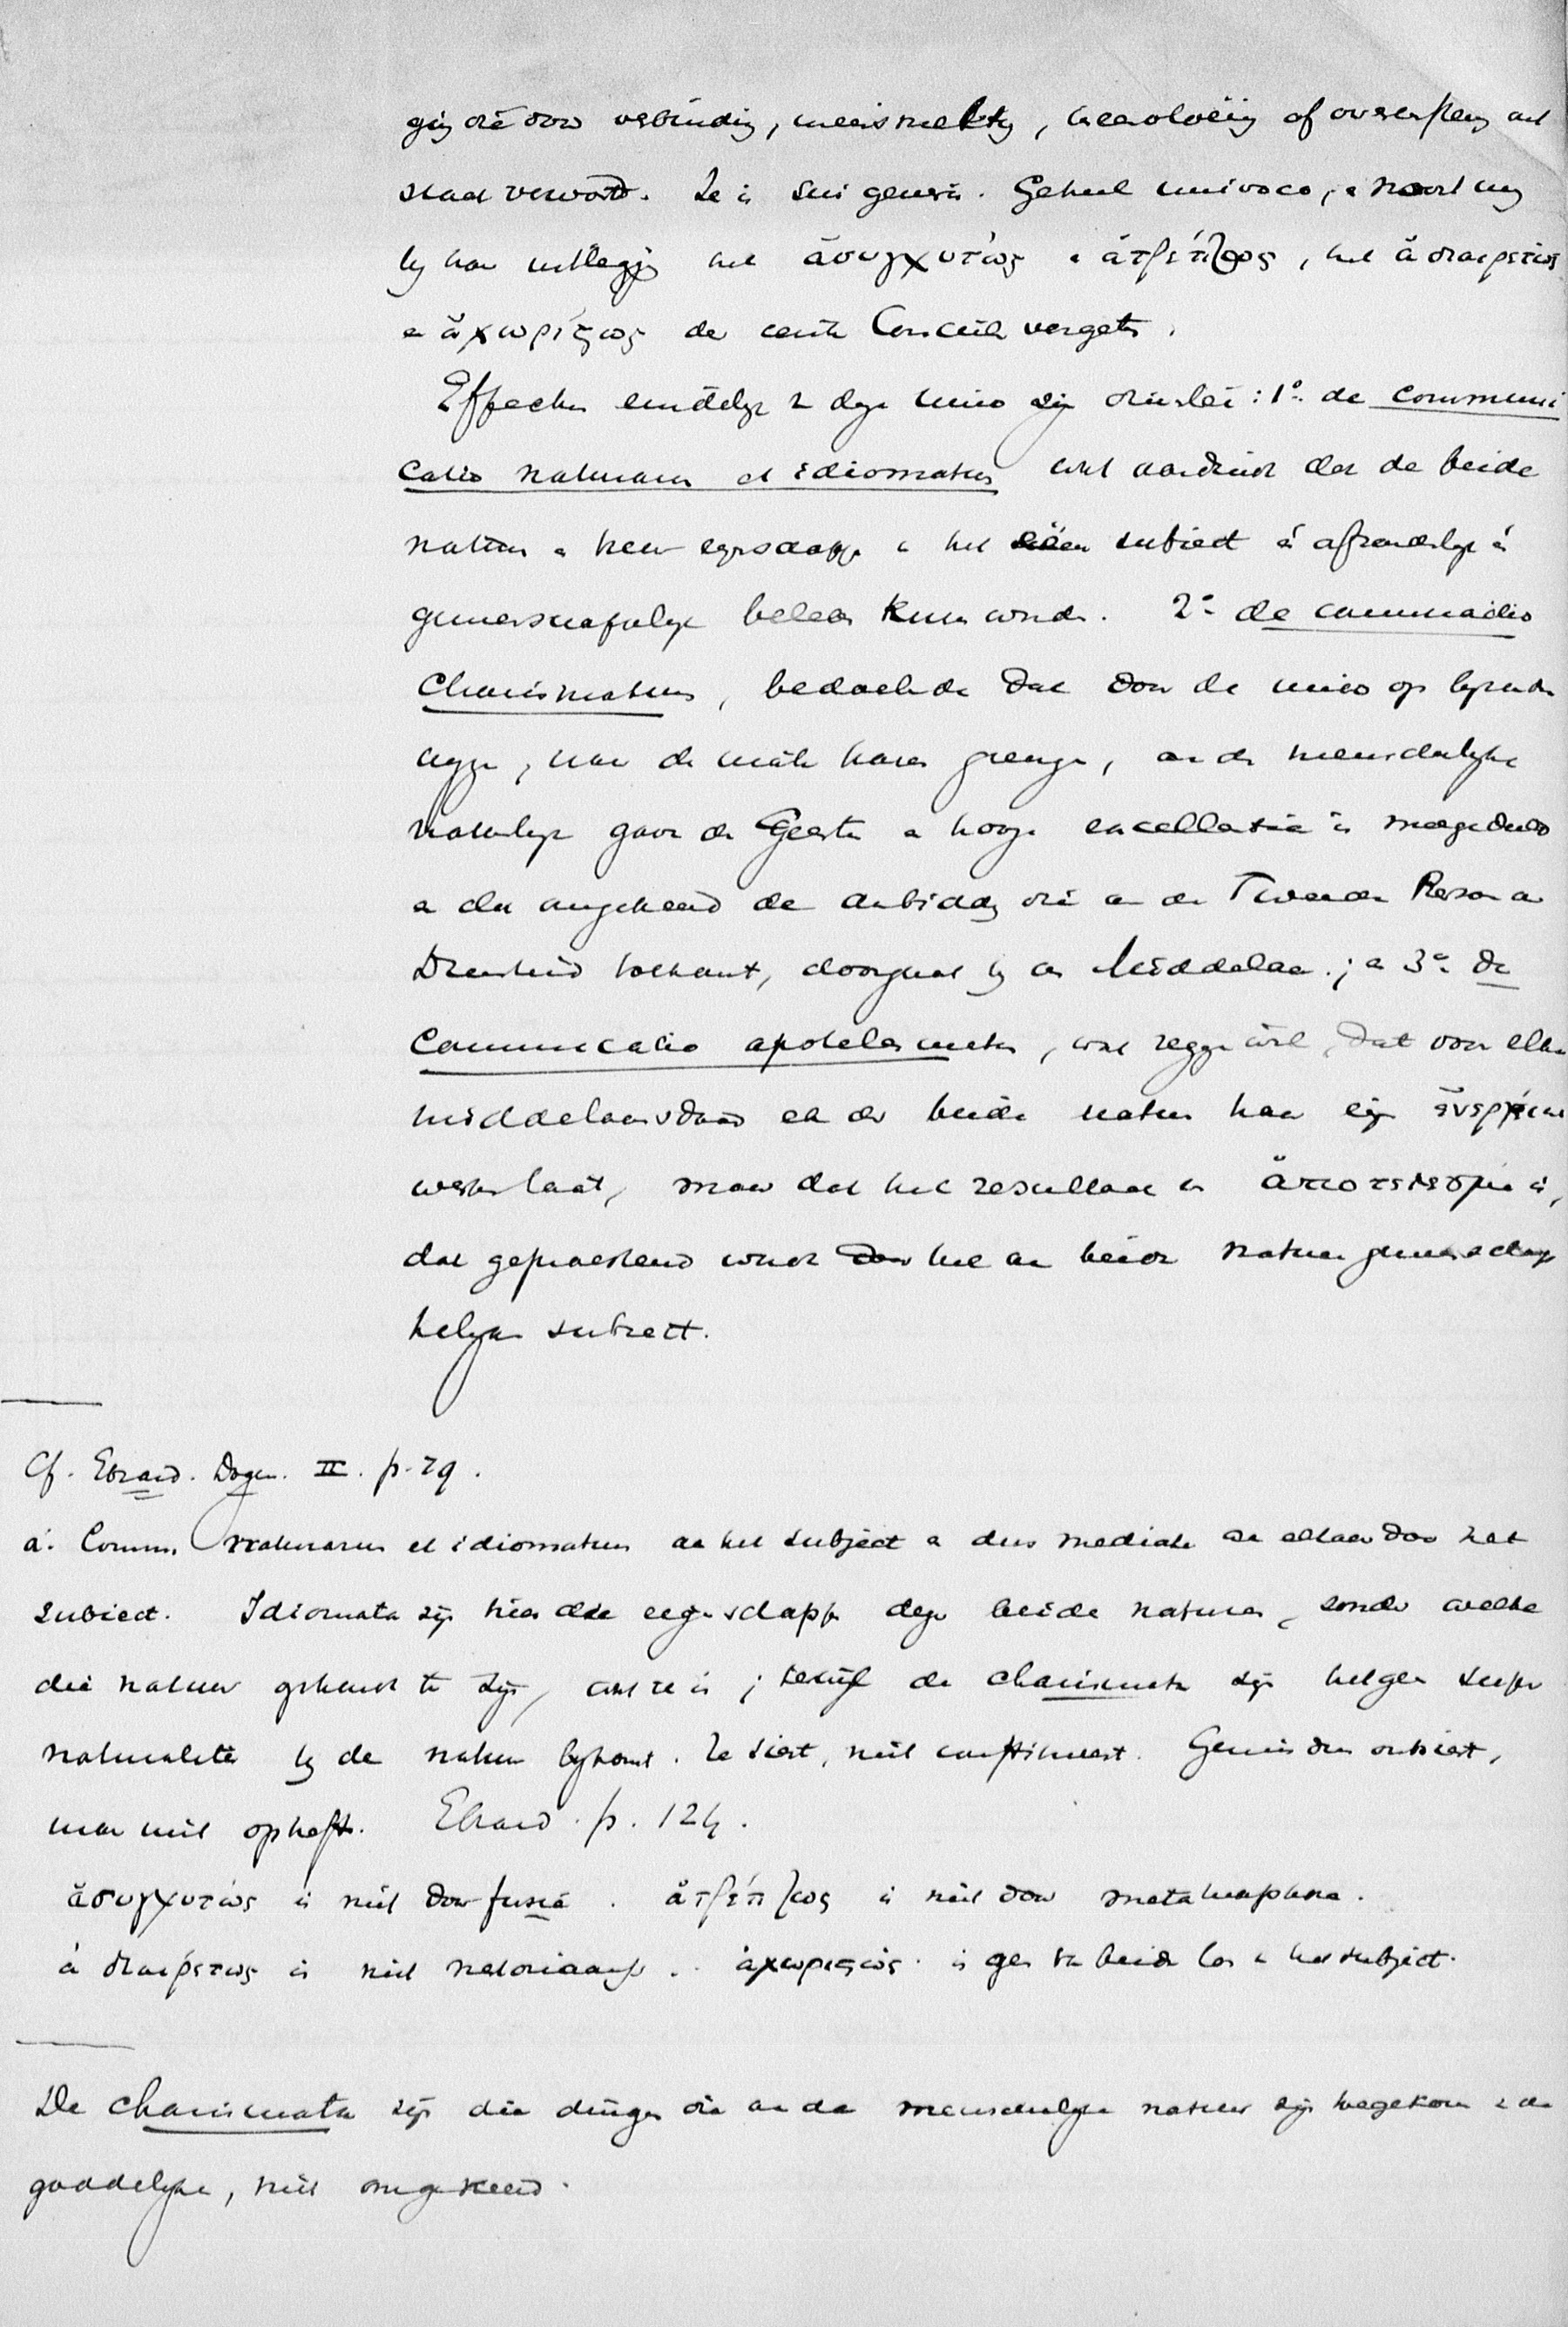 ging die door verbinding, vermenging, of
staat verward. Ze is sui generis. Geheel univoco, en nooit mag
bij haar uitlegging het ἀσυγχυτως en ἀτρέπτως, het ἀδιαιρετως
en ἀχωρίςως der Concilie vergeten.
Effecten eindelijk van deze unio zijn drieërlei: 1º. de communi
catio naturarum et idiomatum wat aanduidt dat de beide
naturen en heur eigenschappen in het ééne subiect én afzonderlijk én
gemeenschappelijk beleden kunnen worden. 2º de communicatio
charismatum, bedoelende dat door de unio op bijzondere
wijze, naar de mate harer grenzen, aan de menschelijke
natuur gaven des Geestes en hooge excellentie is meegedeeld
en dat omgekeerd de aanbidding die aan de Tweede Persoon der
Drieheid toekomt, doorgaat bij den Middelaar; en 3º. de
communicatio apotelesmatum, wat zeggen wil, dat voor elke
middelaarsdaad elk der beide naturen haar eigen ἐνέργειαν
werken laat, maar dat het resultaat een ἀποτελεσμα is,
dat gepraesteerd wordt door het aan beide naturen gemeenschap
pelijke subiect.
Cf. Ebrard. Dogm. II. p. 29.
a. Comm. naturarum et idiomatum aan het subject en dus mediate aan elkaar door het
subiect. Idiomata zijn hier die eigenschappen dezer beide naturen, zonder welke
die natuur gekend te zijn, wat ze is; terwijl de charismata zijn hetgeen super
naturaliter bij de natuur bijkomt. Ze siert, niet constitueert. Gemis dus ontsiert,
maar niet opheft. Ebrard. p. 124.
ἀσυγχυτως is niet door fusie. ἀτρέπτως is niet door metamorphose.
ἀδιαιρετως is niet nestoriaansch. ἀχωριςως is geen van beide los in het subject.
De charismata zijn die dingen die aan de menschelijke natuur zijn toegekomen van de
goddelijke, niet omgekeerd.